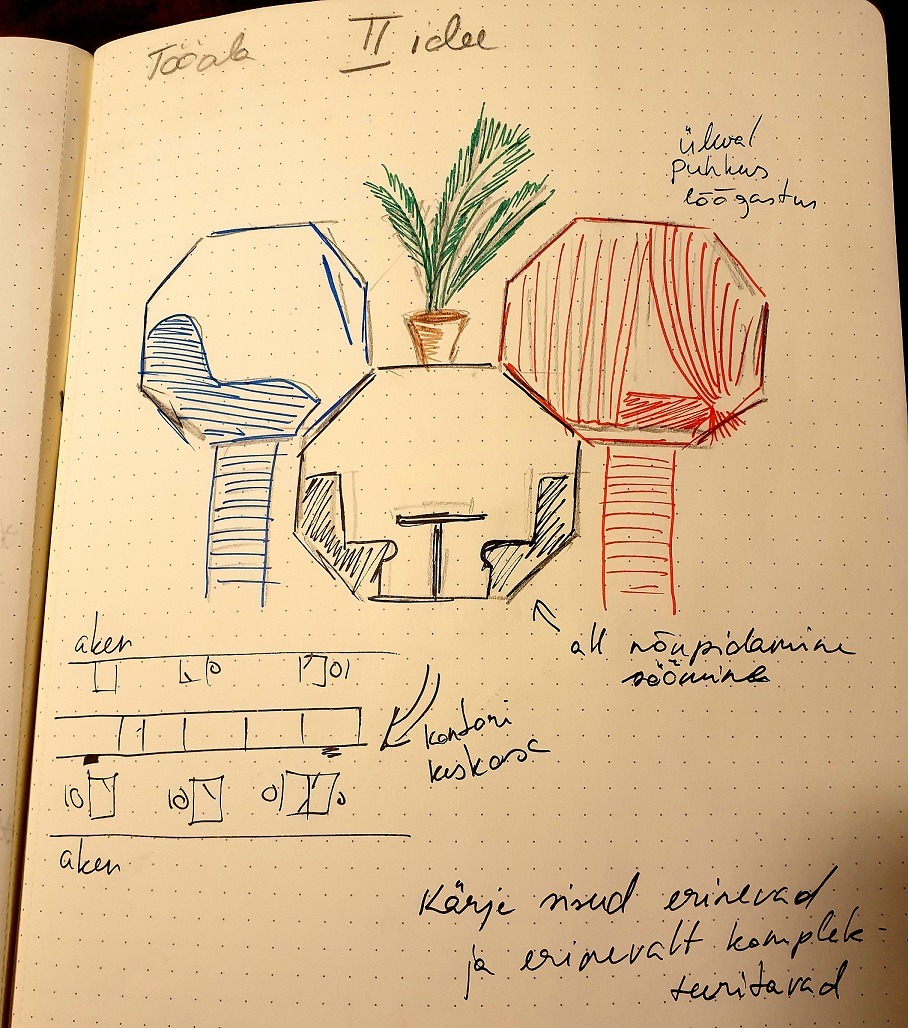 Tööala
II idee
üleval
puhkus
lõõgastus
all nõupidamine
söömine
aken
kontori
keskossa
aken
Kärje sisud erinevad
ja erinevalt komplek-
teeritavad